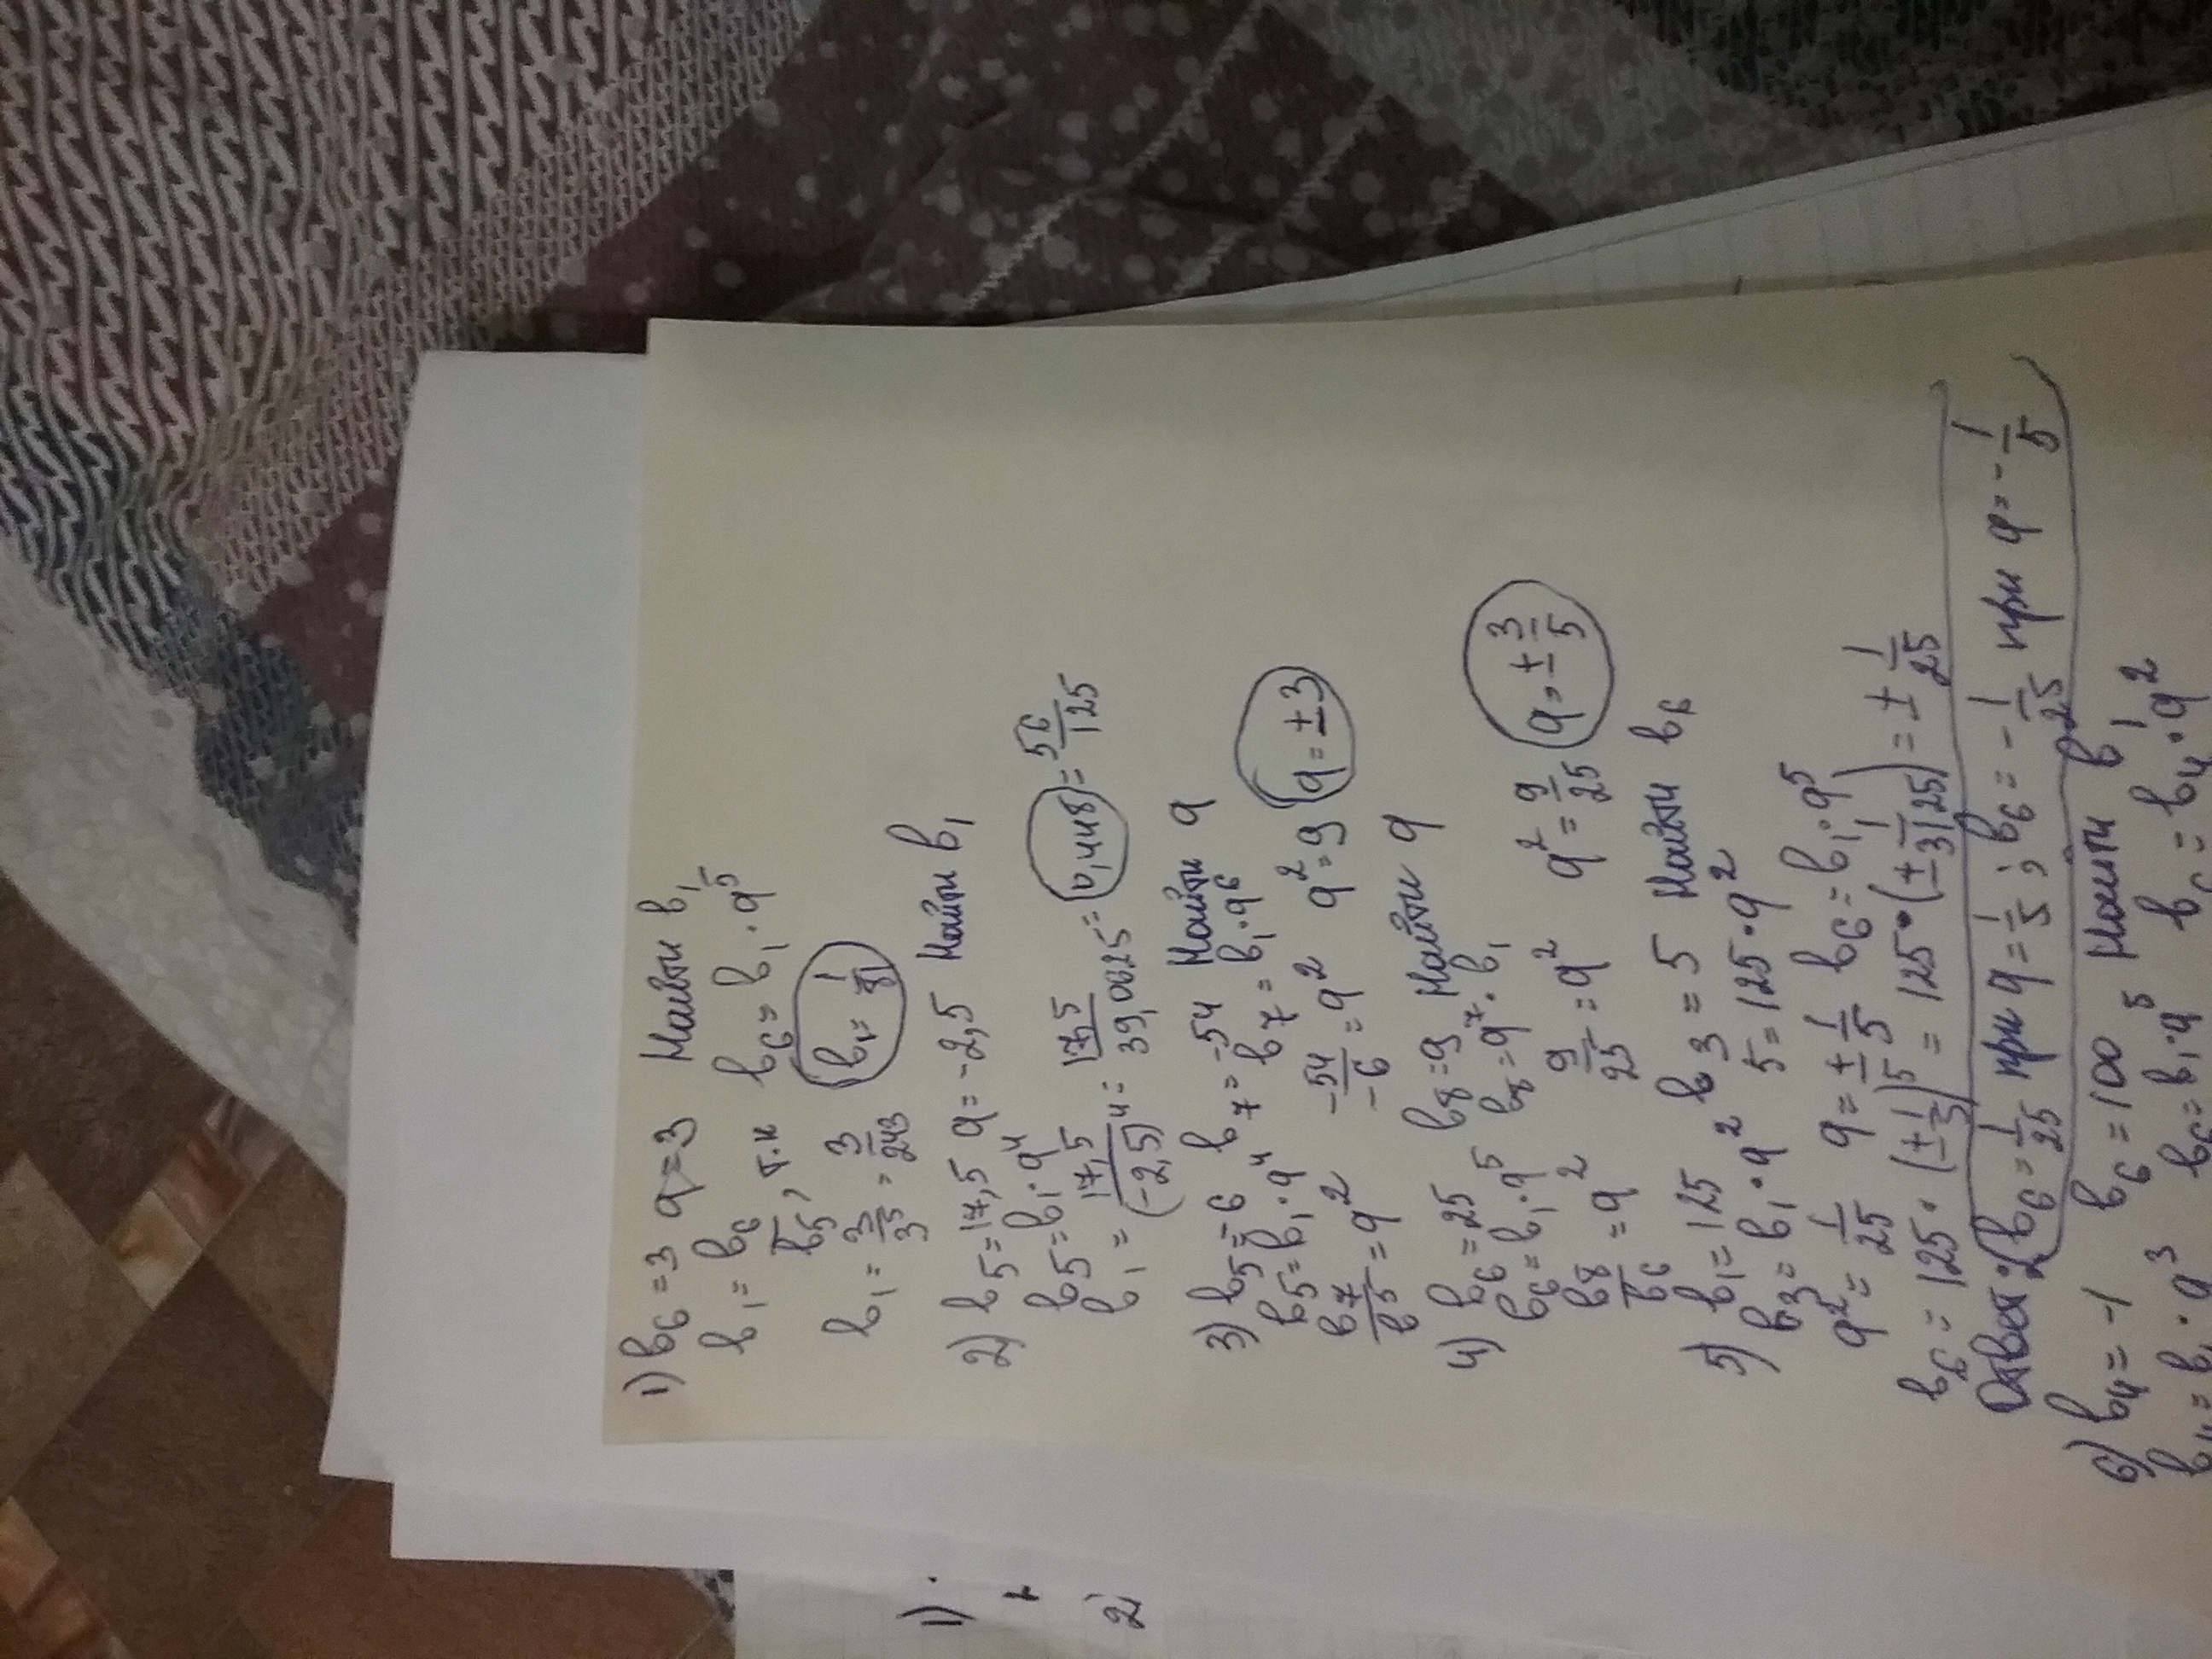 1) b₆ = 3 q = 3 Найти b₁
b₁ = b₆/b₅, т.к b₆ = b₁ · q⁵
b₁ = 3/3⁵ = 3/243 b₁ = 1/81
2) b₅ = 17,5 q = -2,5 Найти b₁
b₅ = b₁ · q⁴
b₁ = 17,5/(-2,5)⁴ = 17,5/39,0625 = 0,448 = 56/125
3) b₅ = -6 b₇ = -54 Найти q
b₅ = b₁ · q⁴ b₇ = b₁ · q⁶
b₇/b₅ = q² -54/-6 = q² q² = 9 q = ±3
4) b₆ = 25 b₈ = 9 Найти q
b₆ = b₁ · q⁵ b₈ = q⁷ · b₁
b₈/b₆ = q² 9/25 = q² q² = 9/25 q = ±3/5
5) b₁ = 125 b₃ = 5 Найти b₆
b₃ = b₁ · q² 5 = 125 · q²
q² = 1/25 q = ±1/5 b₆ = b₁ · q⁵
b₆ = 125 · (±1/5)⁵ = 125 · (±1/3125) = ±1/25
Ответ: b₆ = 1/25 при q = 1/5; b₆ = -1/25 при q = -1/5
6) b₄ = -1 b₆ = 100 Найти b₁
b₄ = b₁ · q³ b₆ = b₁ · q⁵ b₆ = b₄ · q²
1)
2)